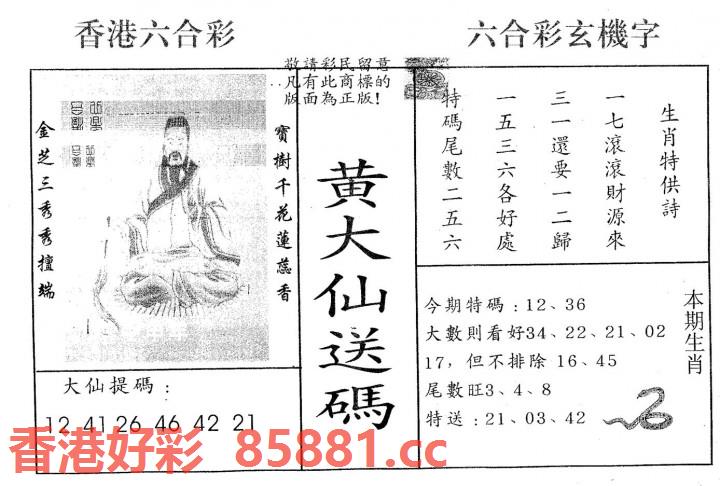 香港六合彩
六合彩玄機字
敬請彩民留意
凡有此商標的
版面為正版!
寶樹千花蓮蕊香
金芝三秀秀擅端
黃大仙送碼
生肖特供詩
一七滾滾財源來
三一還要一二歸
一五三六各好處
特碼尾數二五六
本期生肖
今期特碼:12、36
大數則看好34、22、21、02
17，但不排除 16、45
尾數旺3、4、8
特送:21、03、42
大仙提碼:
12 41 26 46 42 21
香港好彩 85881.cc